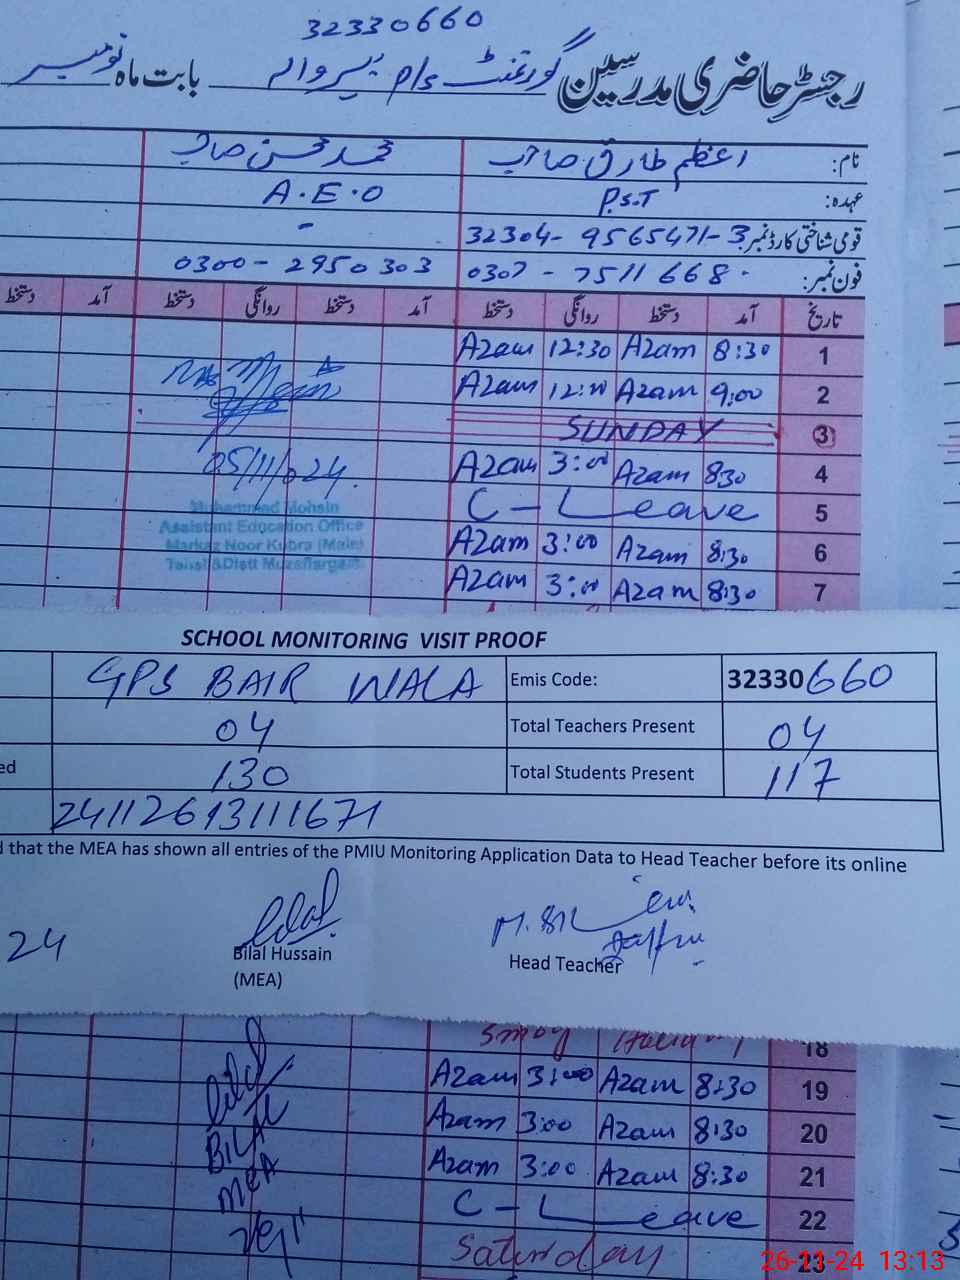 32330660
رجسٹر حاضری مدرسین گورنمنٹ پ/س بیروالہ بابت ماہ نومبر
نام: اعظم طارق صاحب محمد محسن صاحب
عہدہ: P.S.T A.E.O
قومی شناختی کارڈ نمبر: 32304-9565471-3 -
فون نمبر: 0307-7511668 0300-2950303
تاریخ آمد دستخط روانگی دستخط آمد دستخط روانگی دستخط آمد دستخط
1 8:30 Azam 12:30 Azam
2 9:00 Azam 12:00 Azam
3 SUNDAY
4 8:30 Azam 3:00 Azam
05/11/024
5 C-Leave
Muhammad Mohsin
Assistant Education Office
Markaz Noor Kubra (Male)
Tehsil & Distt Muzaffargarh
6 8:30 Azam 3:00 Azam
7 8:30 Azam 3:00 Azam
SCHOOL MONITORING VISIT PROOF
GPS BAIR WALA Emis Code: 32330660
04 Total Teachers Present 04
ed 130 Total Students Present 117
24112613111671
d that the MEA has shown all entries of the PMIU Monitoring Application Data to Head Teacher before its online
24
Bilal Hussain
(MEA)
Head Teacher
18 Smog Holiday
19 8:30 Azam 3:00 Azam
20 8:30 Azam 3:00 Azam
21 8:30 Azam 3:00 Azam
22 C-Leave
23 Saturday
Bilal
BILAL
MEA
26-11-24 13:13